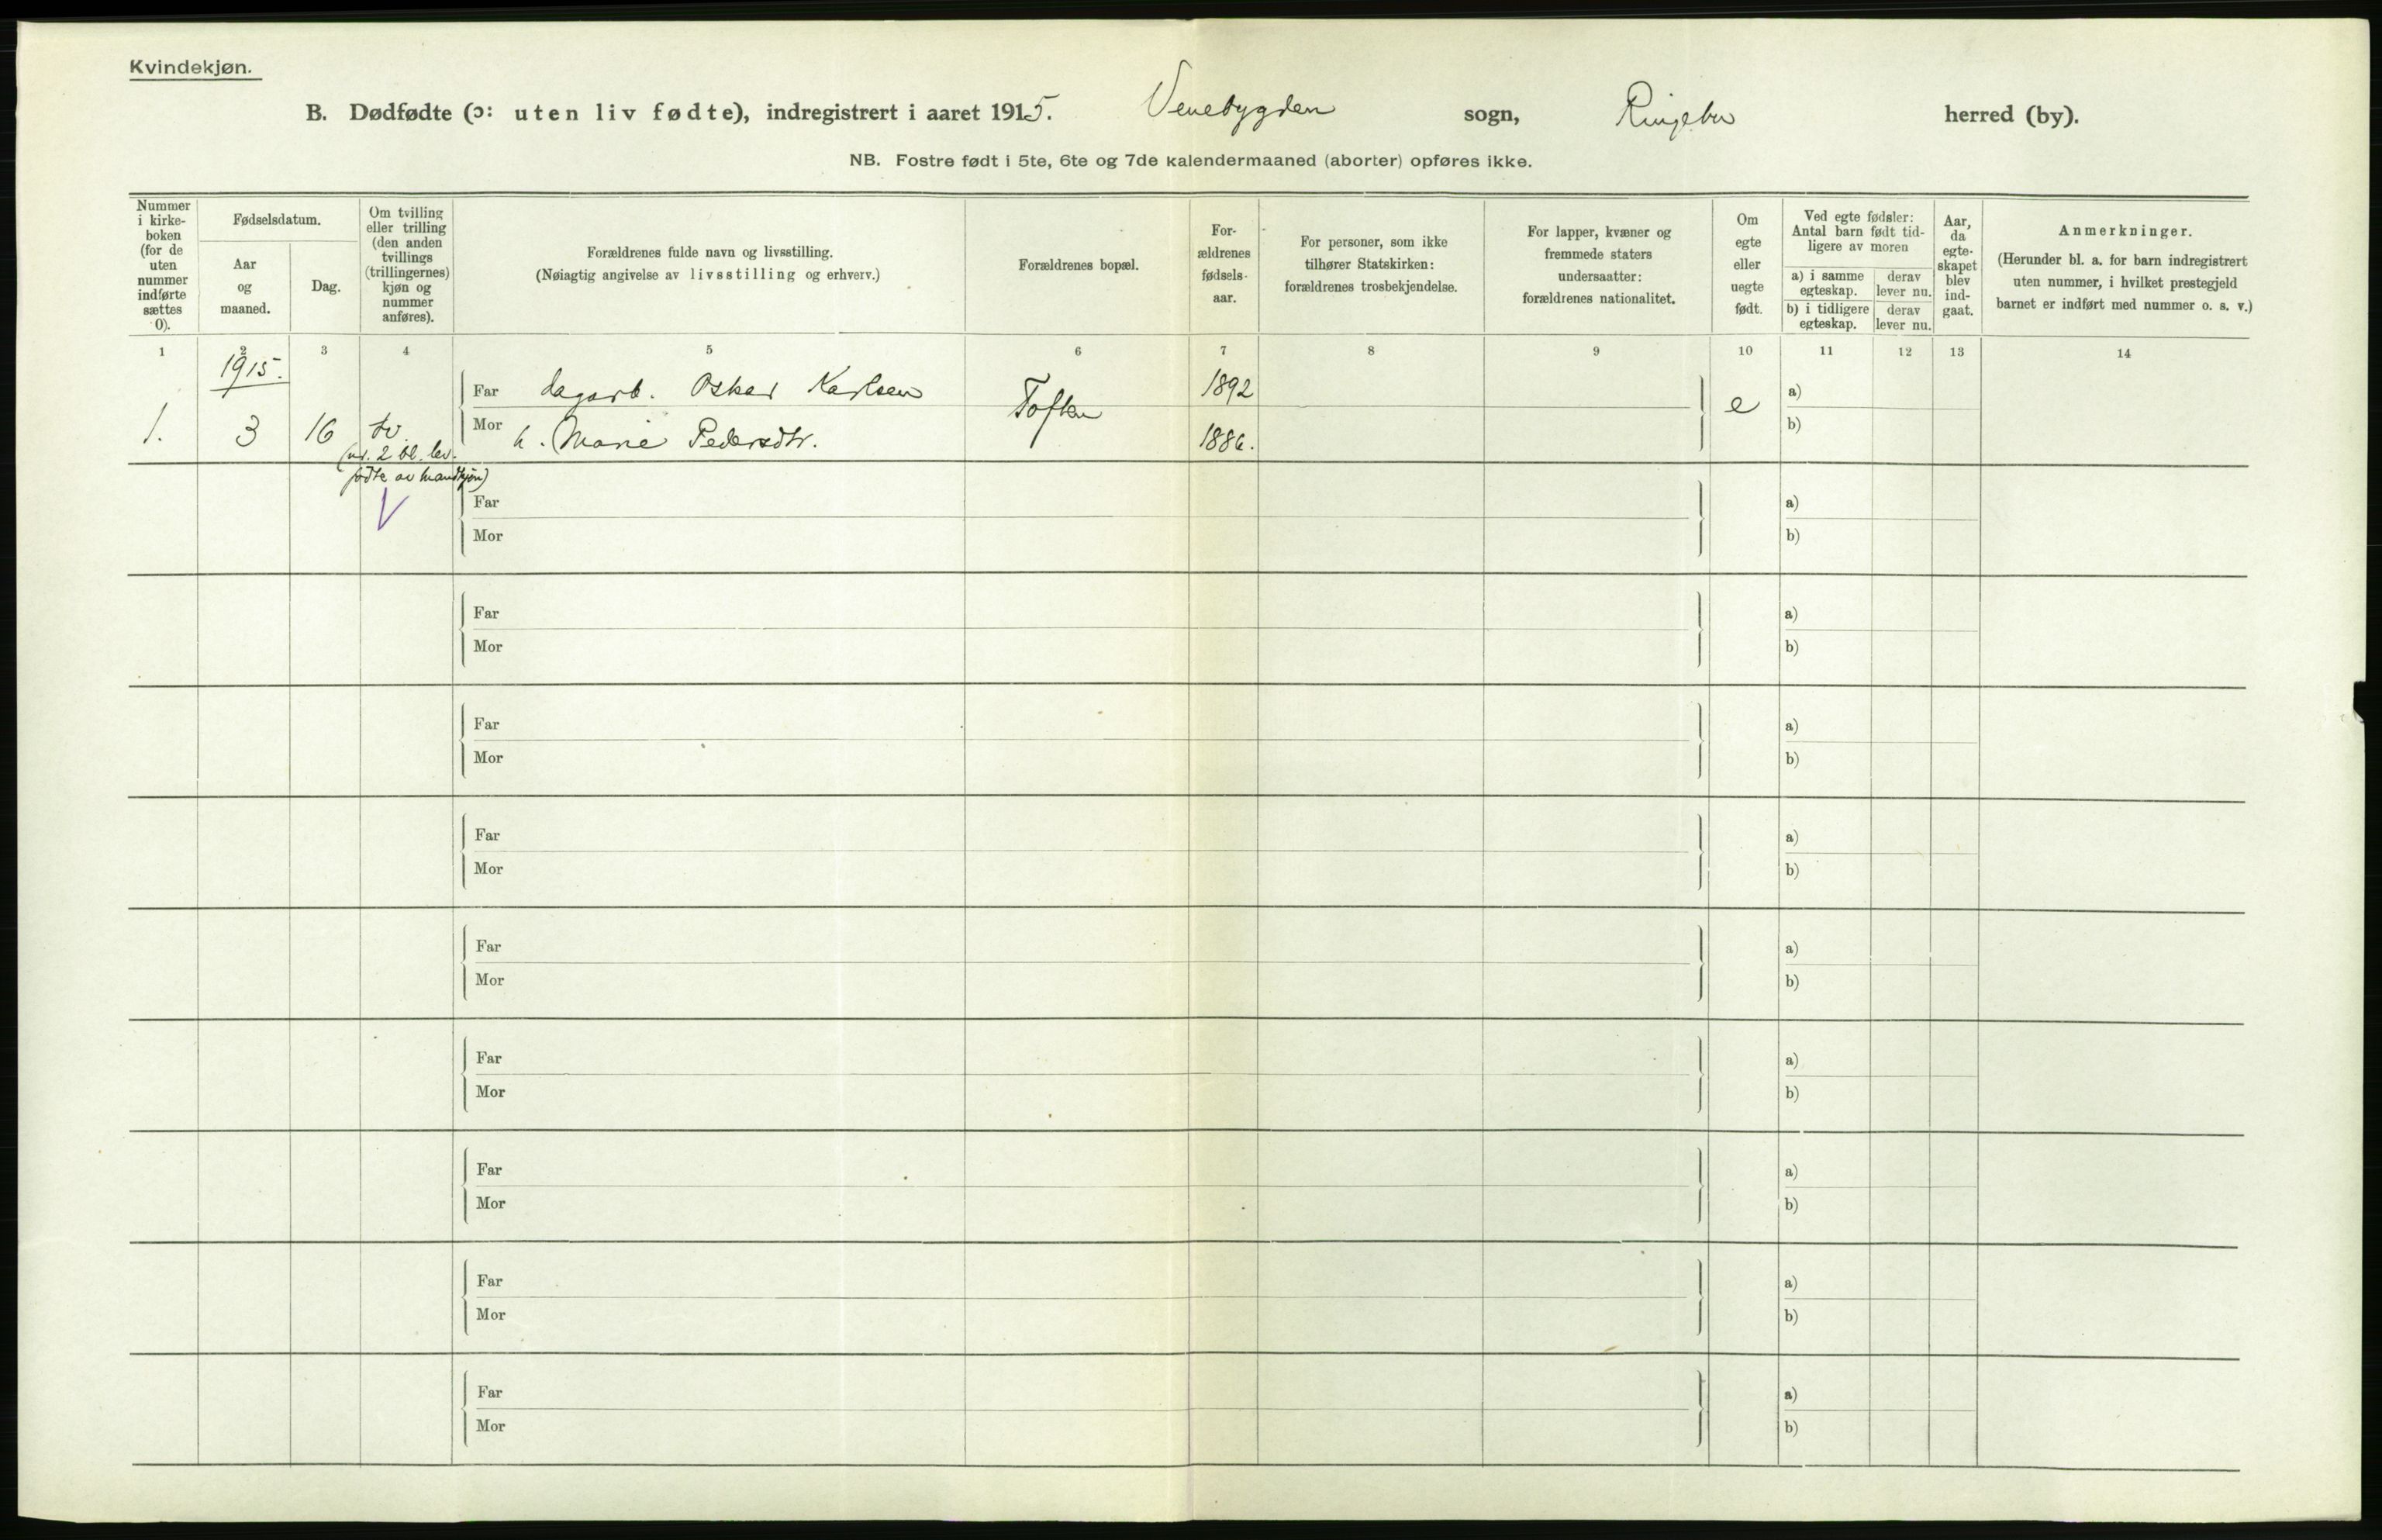 Kvindekjøn.
B. Dødfødte (ɔ: uten liv fødte), indregistrert i aaret 1915. Venebygden sogn, Ringebu herred (by).
NB. Fostre født i 5te, 6te og 7de kalendermaaned (aborter) opføres ikke.
Nummer i kirke-boken (for de uten nummer indførte sættes 0).
Fødselsdatum.
Aar og maaned.
Dag.
Om tvilling eller trilling (den anden tvillings (trillingernes) kjøn og nummer anføres).
Forældrenes fulde navn og livsstilling.
(Nøiagtig angivelse av livsstilling og erhverv.)
Forældrenes bopæl.
For-ældrenes fødsels-aar.
For personer, som ikke tilhører Statskirken: forældrenes trosbekjendelse.
For lapper, kvæner og fremmede staters undersaatter: forældrenes nationalitet.
Om egte eller uegte født.
Ved egte fødsler: Antal barn født tid-ligere av moren
a) i samme egteskap.
derav lever nu.
b) i tidligere egteskap.
derav lever nu.
Aar, da egte-skapet blev ind-gaat.
Anmerkninger.
(Herunder bl. a. for barn indregistrert uten nummer, i hvilket prestegjeld barnet er indført med nummer o. s. v.)
1 2 3 4 5 6 7 8 9 10 11 12 13 14
1915.
Far dagarb. Oskar Karlsen Toften 1892 e a)
1. 3 16 tv. Mor h. Marie Pedersdtr. 1886. b)
(nr. 2 bl. lev.
fødte av mandkjøn)
V
Far a)
Mor b)
Far a)
Mor b)
Far a)
Mor b)
Far a)
Mor b)
Far a)
Mor b)
Far a)
Mor b)
Far a)
Mor b)
Far a)
Mor b)
Far a)
Mor b)